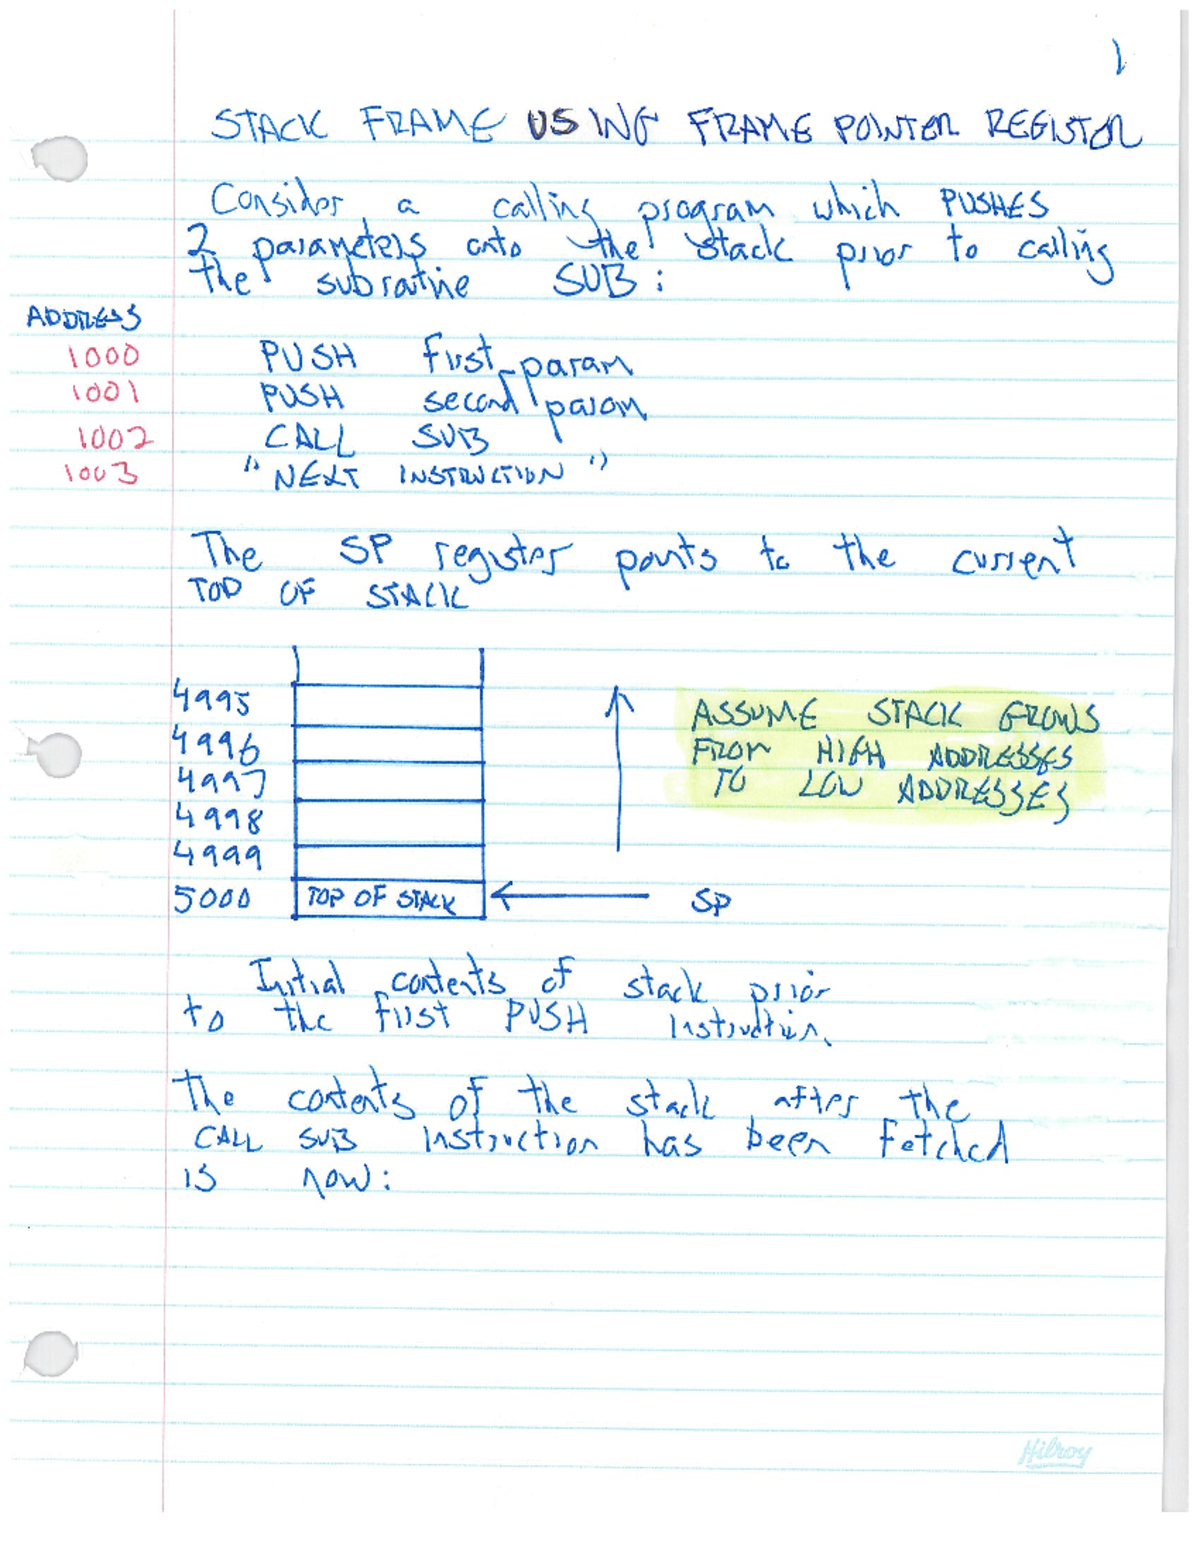 1
STACK FRAME USING FRAME POINTER REGISTER
Consider a calling program which PUSHES
2 parameters onto the stack prior to calling
the subroutine SUB:
ADDRESS
1000 PUSH first_param
1001 PUSH second_param
1002 CALL SUB
1003 "NEXT INSTRUCTION"
The SP register points to the current
TOP OF STACK
4995
4996
4997
4998
4999
5000 TOP OF STACK SP
ASSUME STACK GROWS
FROM HIGH ADDRESSES
TO LOW ADDRESSES
Initial contents of stack prior
to the first PUSH instruction.
The contents of the stack after the
CALL SUB instruction has been fetched
is now:
Hilroy